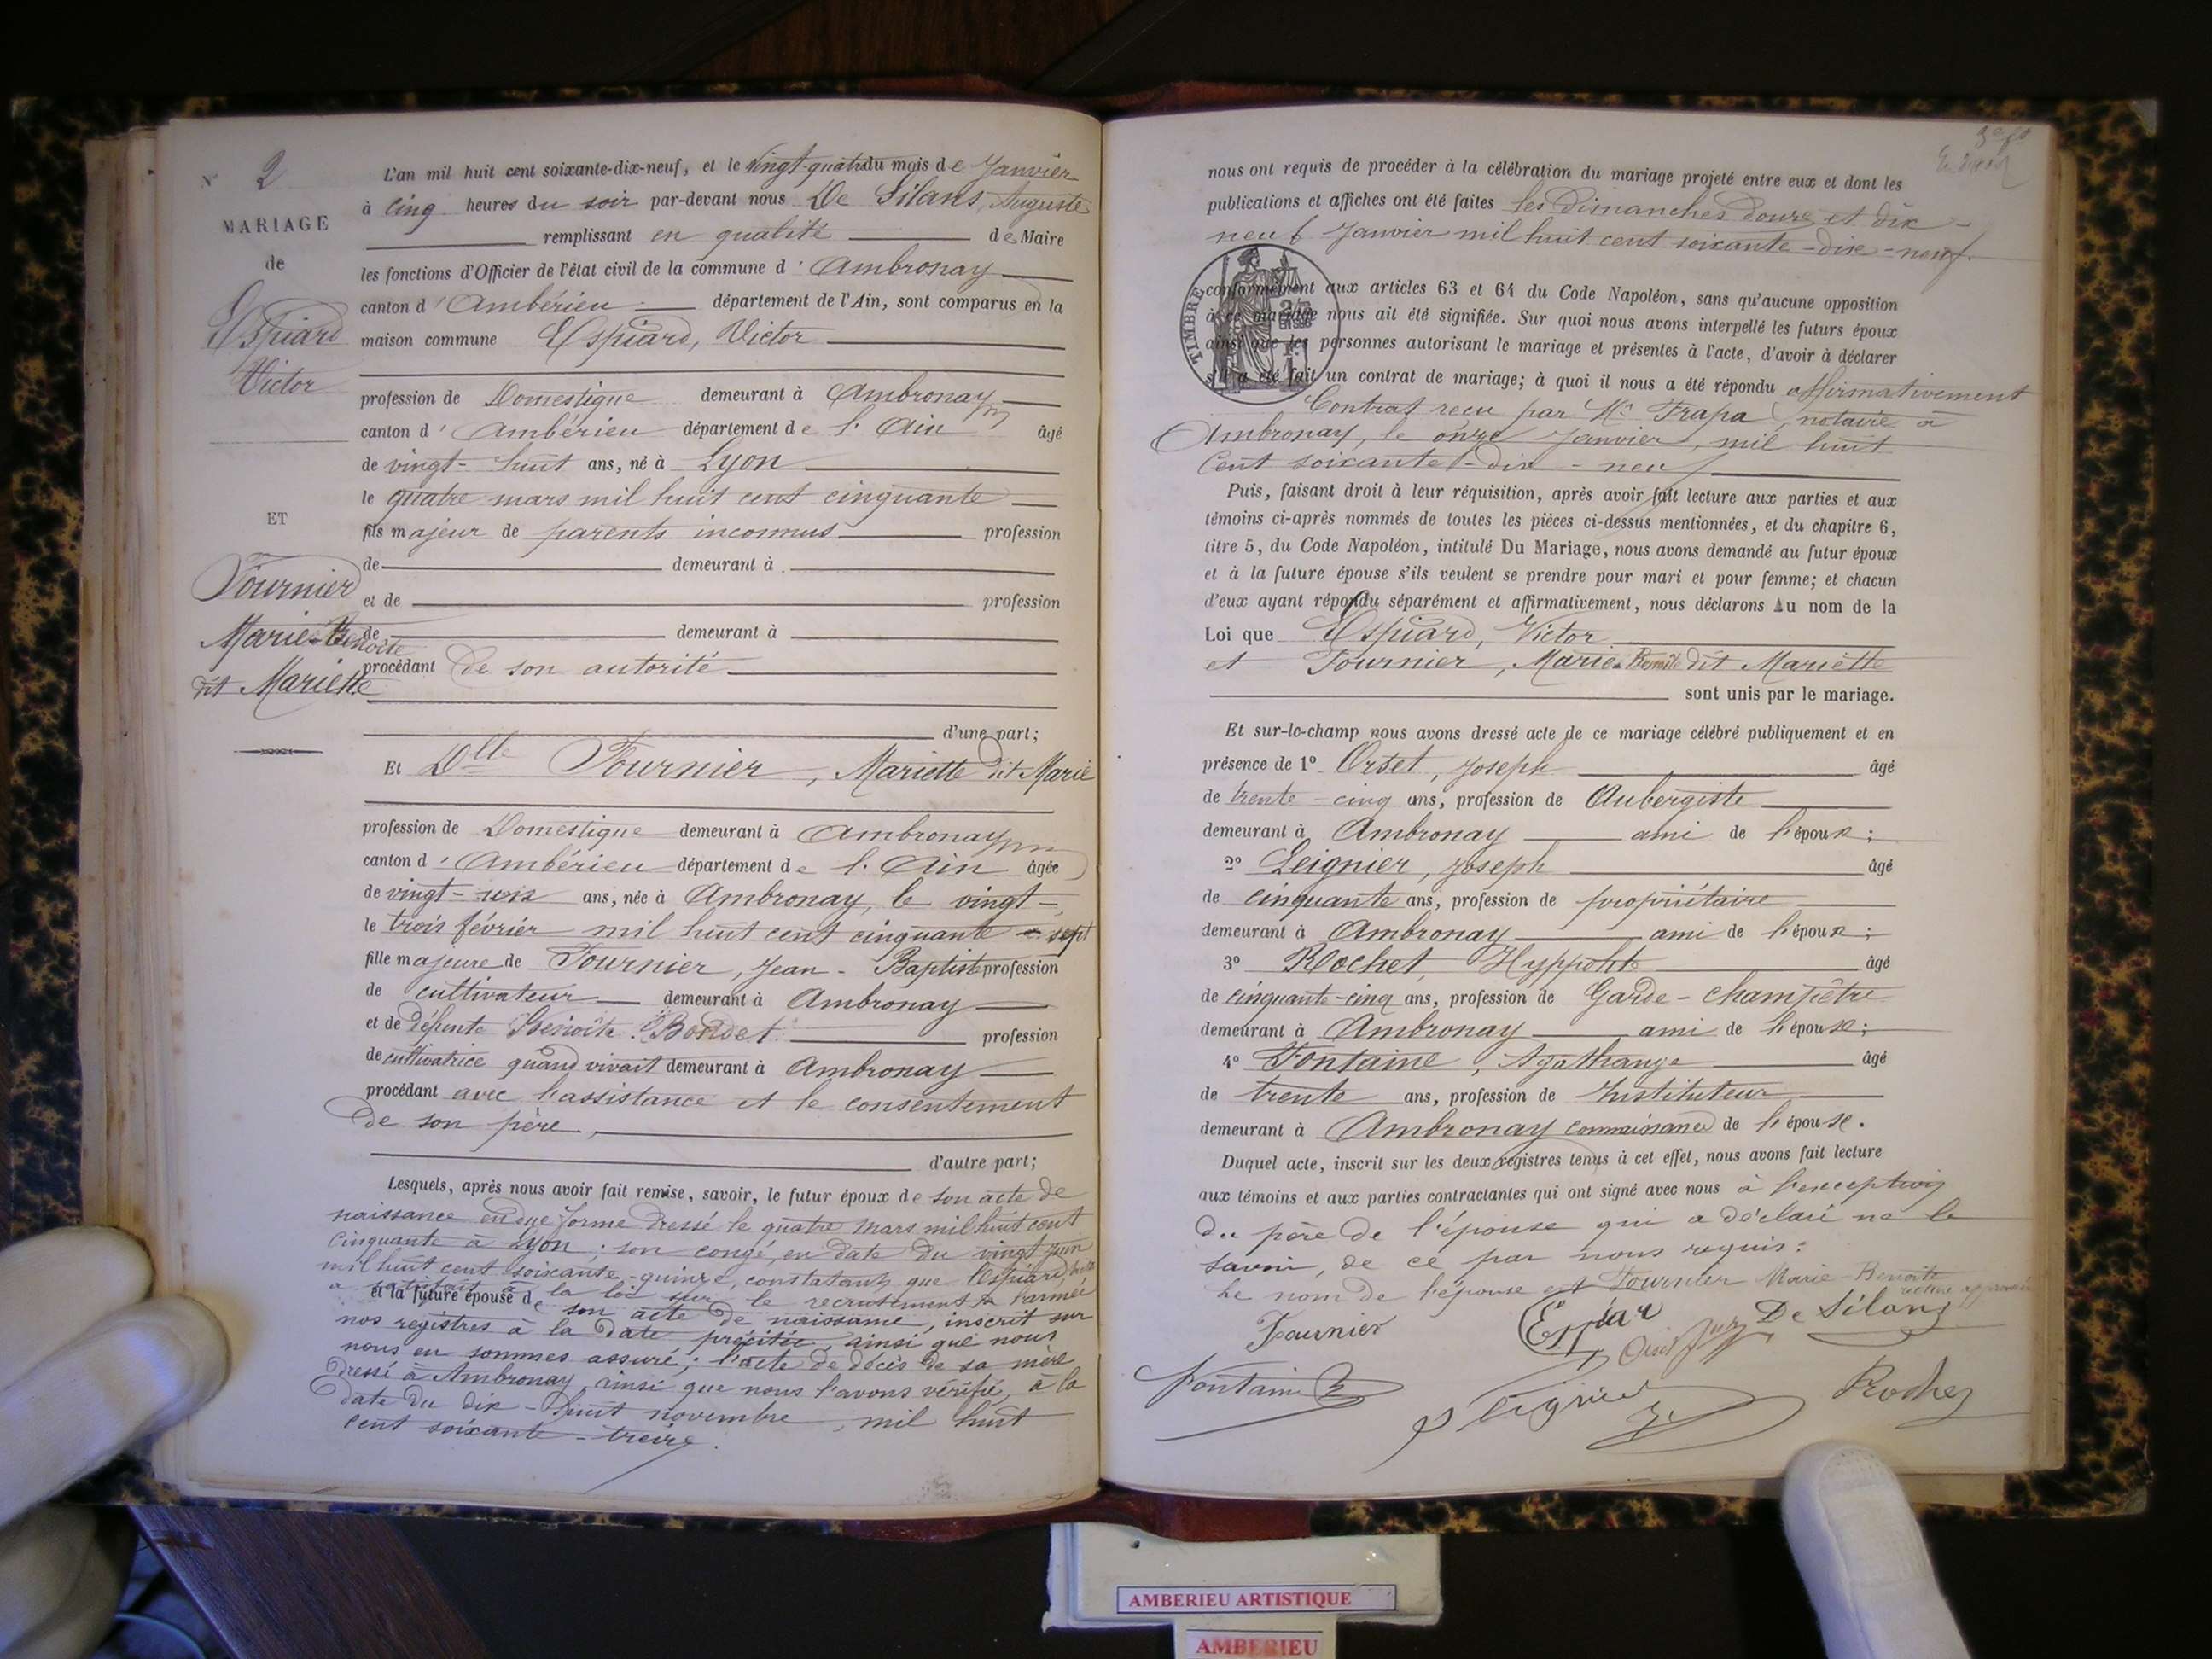 N° 2
MARIAGE
de
Espiard
Victor
ET
Fournier
Marie-Benoîte
dit Mariette
L'an mil huit cent soixante-dix-neuf, et le vingt-quatre du mois de Janvier
à cinq heures du soir par-devant nous De Silans, Auguste
remplissant en qualité de Maire
les fonctions d'Officier de l'état civil de la commune d'Ambronay
canton d'Ambérieu département de l'Ain, sont comparus en la
maison commune Espiard, Victor
profession de Domestique demeurant à Ambronay
canton d'Ambérieu département de l'Ain âgé
de vingt-huit ans, né à Lyon
le quatre mars mil huit cent cinquante
fils majeur de parents inconnus profession
de demeurant à
et de profession
de demeurant à
procédant de son autorité
d'une part;
Et Dlle Fournier, Mariette dit Marie
profession de Domestique demeurant à Ambronay
canton d'Ambérieu département de l'Ain âgée
de vingt- ans, née à Ambronay, le vingt-
le trois février mil huit cent cinquante sept
fille majeure de Fournier, Jean-Baptiste profession
de cultivateur demeurant à Ambronay
et de défunte Benoîte Bordet profession
de cultivatrice quand vivait demeurant à Ambronay
procédant avec l'assistance et le consentement
de son père,
d'autre part;
Lesquels, après nous avoir fait remise, savoir, le futur époux de son acte de
naissance en due forme dressé le quatre mars mil huit cent
cinquante à Lyon; son congé, en date du vingt juin
mil huit cent soixante-quinze, constatant que Espiard,
a satisfait à la loi sur le recrutement de l'armée
et la future épouse de son acte de naissance, inscrit sur
nos registres à la date précitée, ainsi que nous
nous en sommes assuré; l'acte de décès de sa mère
dressé à Ambronay, ainsi que nous l'avons vérifié, à la
date du dix-huit novembre, mil huit
cent soixante-treize.
nous ont requis de procéder à la célébration du mariage projeté entre eux et dont les
publications et affiches ont été faites les Dimanches douze et dix-
neuf Janvier mil huit cent soixante-dix-neuf.
TIMBRE
conformément aux articles 63 et 64 du Code Napoléon, sans qu'aucune opposition
à ce mariage nous ait été signifiée. Sur quoi nous avons interpellé les futurs époux
ainsi que les personnes autorisant le mariage et présentes à l'acte, d'avoir à déclarer
s'il a été fait un contrat de mariage; à quoi il nous a été répondu affirmativement
Contrat reçu par Me Trapa, notaire à
Ambronay, le onze Janvier, mil huit
cent soixante-dix-neuf
Puis, faisant droit à leur réquisition, après avoir fait lecture aux parties et aux
témoins ci-après nommés de toutes les pièces ci-dessus mentionnées, et du chapitre 6,
titre 5, du Code Napoléon, intitulé Du Mariage, nous avons demandé au futur époux
et à la future épouse s'ils veulent se prendre pour mari et pour femme; et chacun
d'eux ayant répondu séparément et affirmativement, nous déclarons Au nom de la
Loi que Espiard, Victor
et Fournier, Marie-Benoîte dit Mariette
sont unis par le mariage.
Et sur-le-champ nous avons dressé acte de ce mariage célébré publiquement et en
présence de 1° Orset, Joseph âgé
de trente-cinq ans, profession de Aubergiste
demeurant à Ambronay ami de l'époux;
2° Leignier, Joseph âgé
de cinquante ans, profession de propriétaire
demeurant à Ambronay ami de l'époux;
3° Rochet, Hyppolite âgé
de cinquante-cinq ans, profession de Garde-champêtre
demeurant à Ambronay ami de l'épouse;
4° Fontaine, Agathange âgé
de trente ans, profession de Instituteur
demeurant à Ambronay connaissance de l'épouse.
Duquel acte, inscrit sur les deux registres tenus à cet effet, nous avons fait lecture
aux témoins et aux parties contractantes qui ont signé avec nous à l'exception
du père de l'épouse qui a déclaré ne le
savoir, de ce par nous requis:
Le nom de l'épouse est Fournier Marie-Benoîte
Fournier Espiar De Silans
Fontaine Leignier Rochet
AMBERIEU ARTISTIQUE
AMBERIEU